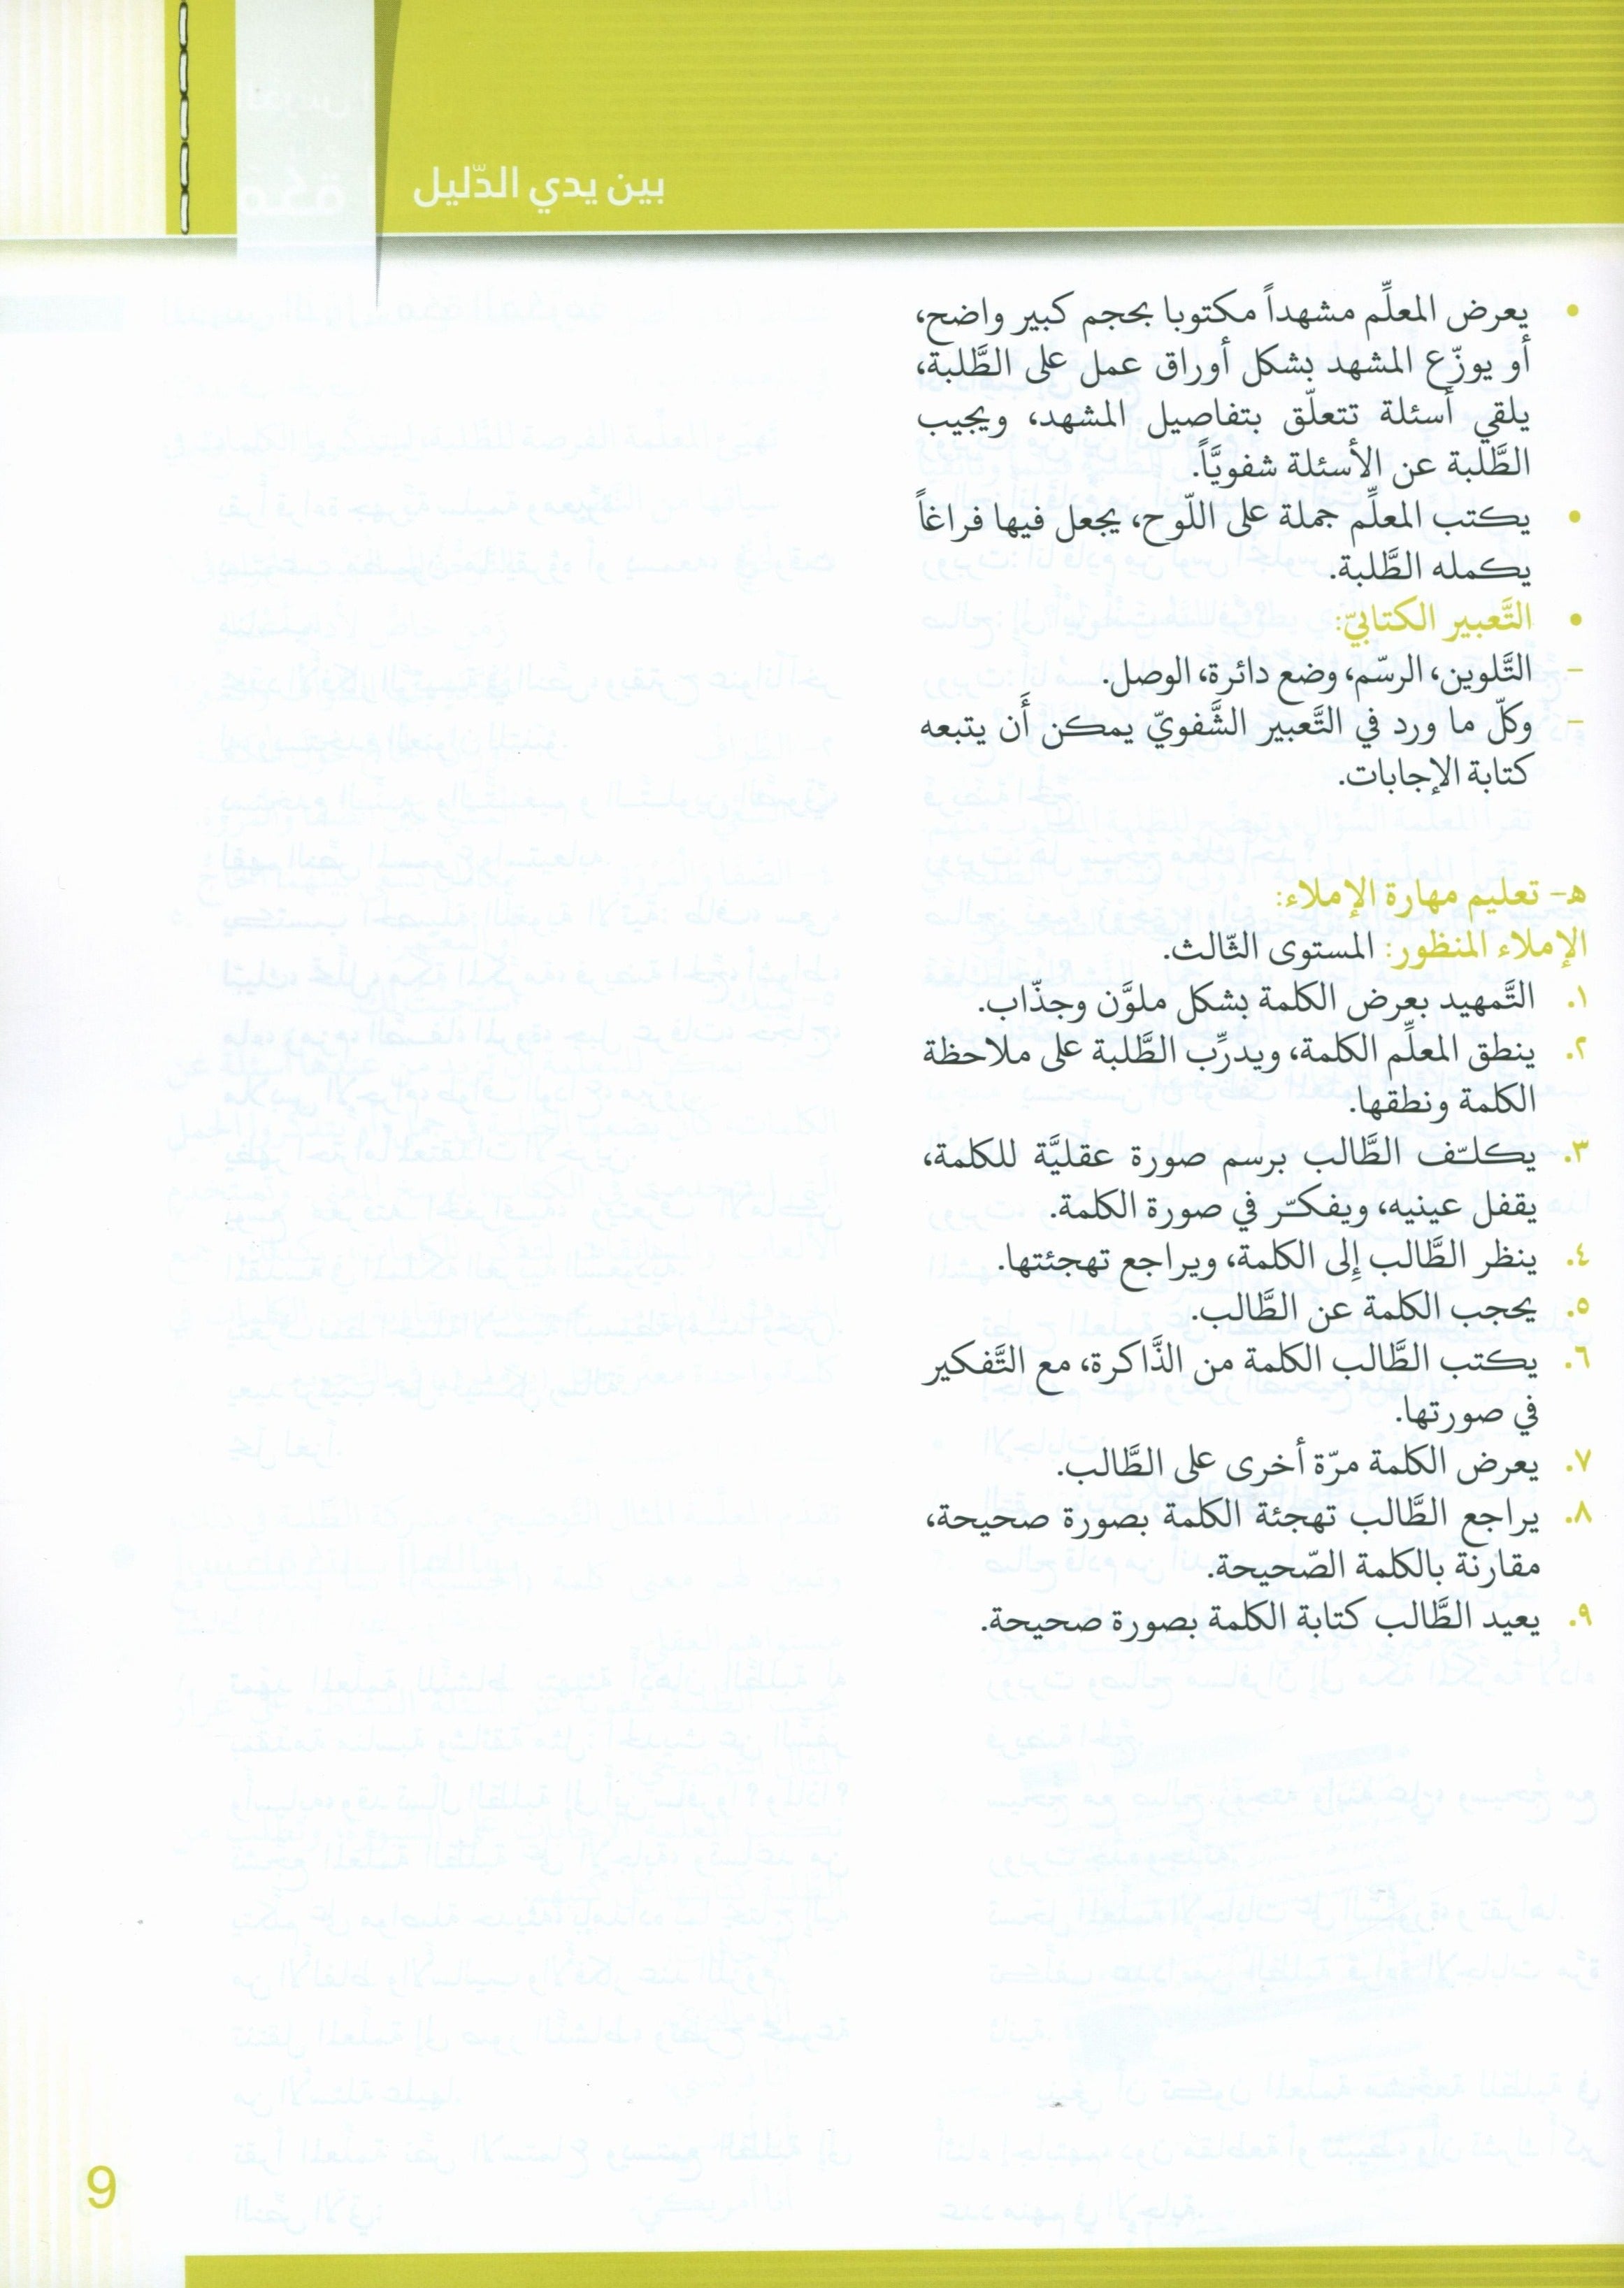 بين يدي الدّليل
• يعرض المعلِّم مشهداً مكتوبا بحجم كبير واضح،
أو يوزّع المشهد بشكل أوراق عمل على الطَّلبة،
يلقي أسئلة تتعلّق بتفاصيل المشهد، ويجيب
الطَّلبة عن الأسئلة شفويَّاً.
• يكتب المعلِّم جملة على اللّوح، يجعل فيها فراغاً
يكمله الطَّلبة.
• التَّعبير الكتابيّ:
– التَّلوين، الرسّم، وضع دائرة، الوصل.
– وكلّ ما ورد في التَّعبير الشَّفويّ يمكن أَن يتبعه
كتابة الإجابات.
هـ- تعليم مهارة الإملاء:
الإملاء المنظور: المستوى الثّالث.
١. التَّمهيد بعرض الكلمة بشكل ملوَّن وجذّاب.
٢. ينطق المعلِّم الكلمة، ويدرِّب الطَّلبة على ملاحظة
الكلمة ونطقها.
٣. يكلـّف الطَّالب برسم صورة عقليَّة للكلمة،
يقفل عينيه، ويفكـّر في صورة الكلمة.
٤. ينظر الطَّالب إِلى الكلمة، ويراجع تهجئتها.
٥. يحجب الكلمة عن الطَّالب.
٦. يكتب الطَّالب الكلمة من الذَّاكرة، مع التَّفكير
في صورتها.
٧. يعرض الكلمة مرّة أخرى على الطَّالب.
٨. يراجع الطَّالب تهجئة الكلمة بصورة صحيحة،
مقارنة بالكلمة الصّحيحة.
٩. يعيد الطَّالب كتابة الكلمة بصورة صحيحة.
9